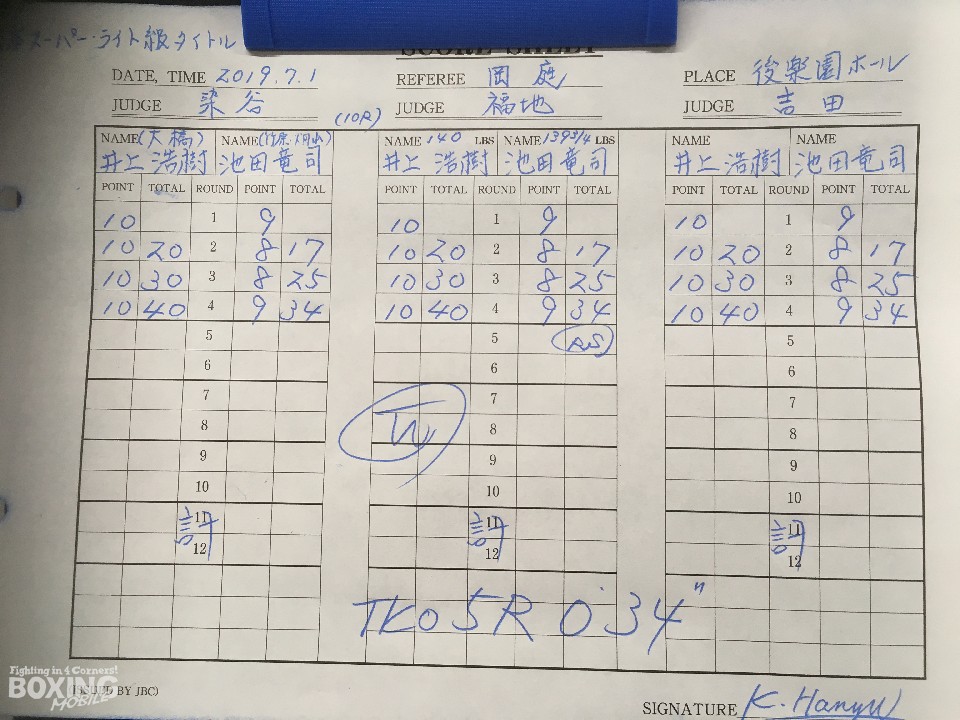 スーパー・ライト級タイトル
SCORE SHEET
DATE, TIME 2019.7.1 REFEREE 岡庭 PLACE 後楽園ホール
JUDGE 染谷 (10R) JUDGE 福地 JUDGE 吉田
NAME (大橋) NAME NAME 140 LBS NAME 139 3/4 LBS NAME NAME
井上浩樹 池田竜司 井上浩樹 池田竜司 井上浩樹 池田竜司
POINT TOTAL ROUND POINT TOTAL POINT TOTAL ROUND POINT TOTAL POINT TOTAL ROUND POINT TOTAL
10 1 9 10 1 9 10 1 9
10 20 2 8 17 10 20 2 8 17 10 20 2 8 17
10 30 3 8 25 10 30 3 8 25 10 30 3 8 25
10 40 4 9 34 10 40 4 9 34 10 40 4 9 34
5 5 RS 5
6 6 6
7 7 7
8 W 8 8
9 9 9
10 10 10
11 11 11
12 12 12
TKO 5R 0'34"
Fighting in 4 Corners!
BOXING
MOBILE
ISSUED BY JBC)
SIGNATURE K. Hanyu